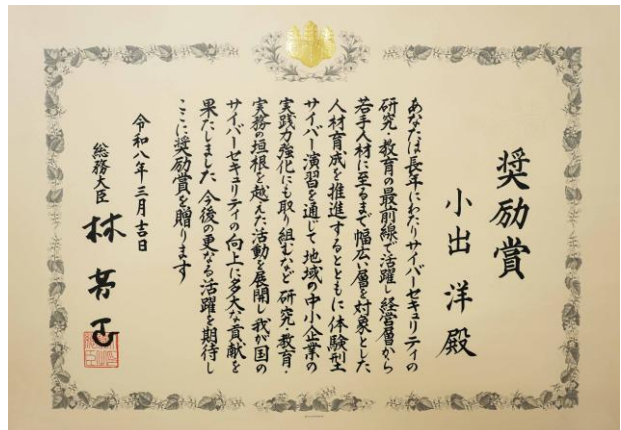 奨励賞
小出 洋 殿
あなたは長年にわたりサイバーセキュリティの
研究・教育の最前線で活躍し経営層から
若手人材に至るまで幅広い層を対象とした
人材育成を推進するとともに体験型
サイバー演習を通じて地域の中小企業の
実践力強化にも取り組むなど研究・教育・
実務の垣根を越えた活動を展開し我が国の
サイバーセキュリティの向上に多大な貢献を
果たしました 今後の更なる活躍を期待し
ここに奨励賞を贈ります
令和八年三月吉日
総務大臣 林 芳正